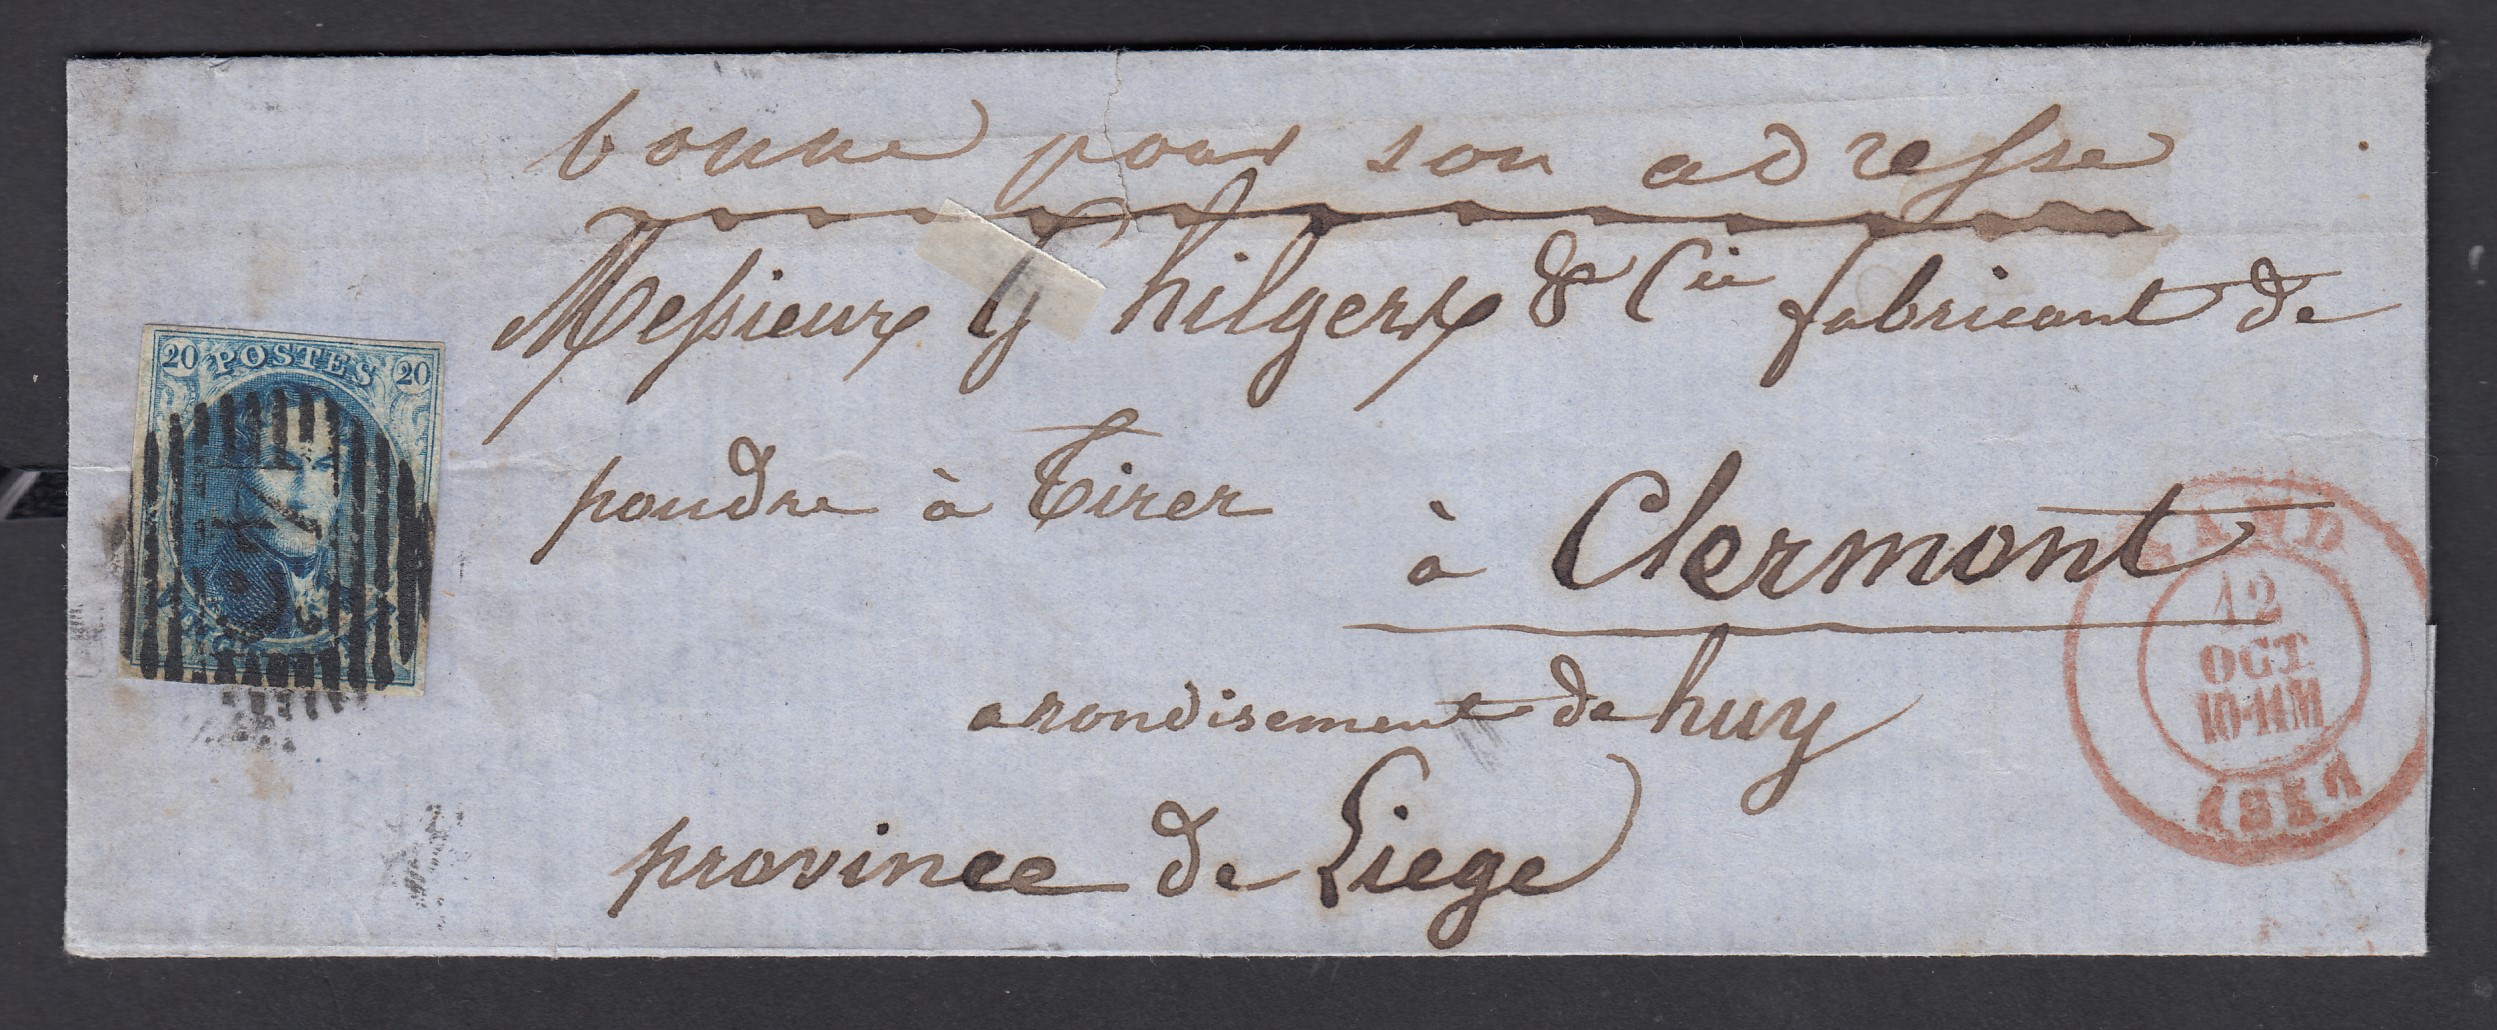 20 POSTES 20
bonne pour son adresse
Messieurs G hilgers & Cie fabricant de
poudre à Tirer
à Clermont
arondisement de huy
province de Liege
GAND
12
OCT
10-11M